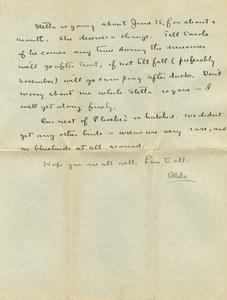 Stella is going about June 15, for about a
month. She deserves a change. Tell Carolo
if he comes any time during the summer
we'll go after trout, if not till fall (preferably
november) will go camping after ducks. Don't
worry about me while Stella is gone – I
will get along finely.
Our nest of Phoebes is hatched. We didn't
get any other birds – wrens are very rare, and
no bluebirds at all around.
Hope you are all well. Love to all.
Aldo